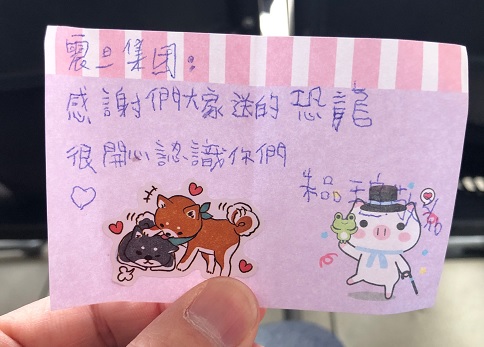 震旦集团:
感謝們大家送的恐龍
很開心認識你們